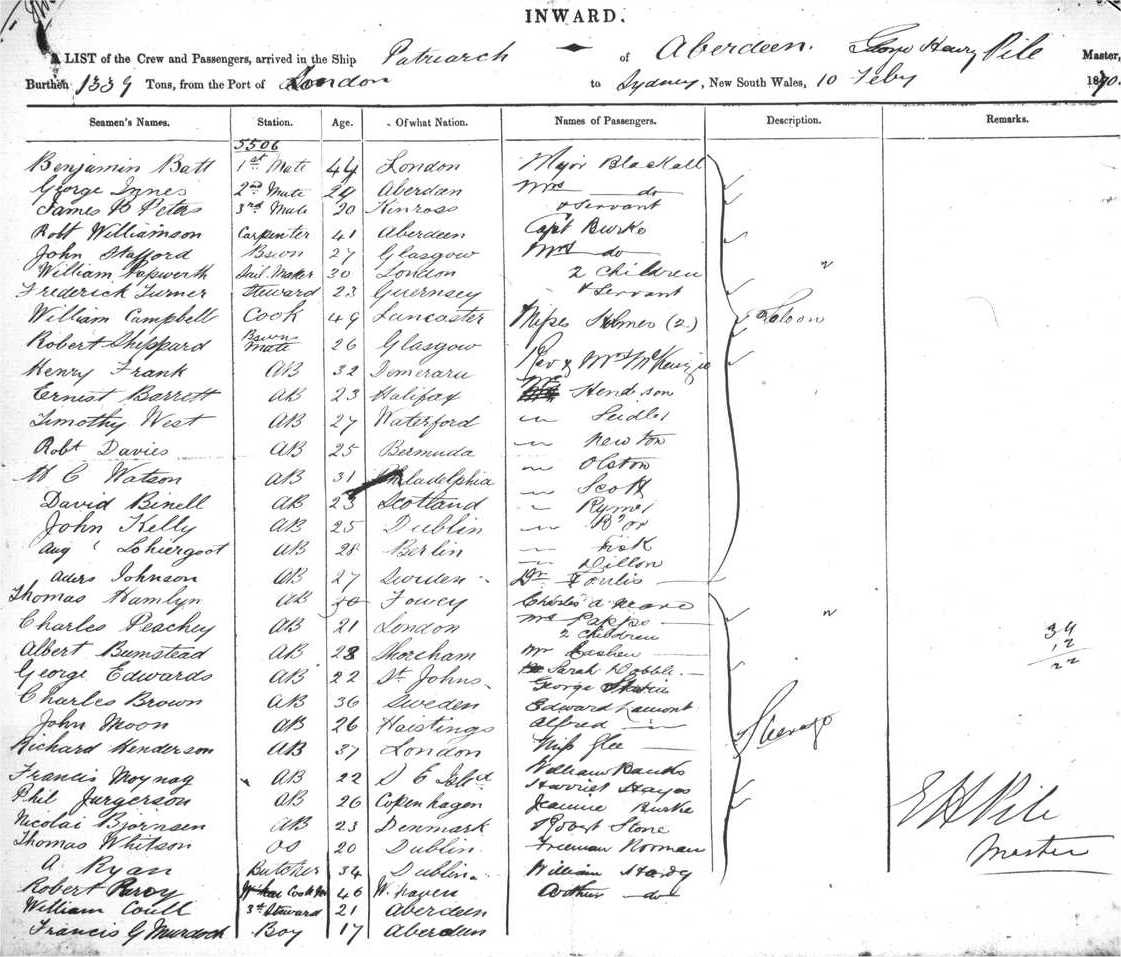 INWARD.
A LIST of the Crew and Passengers, arrived in the Ship Patriarch of Aberdeen. George Henry Pile Master,
Burthen 1339 Tons, from the Port of London to Sydney, New South Wales, 10 Feby 1870.
Seamen's Names. Station. Age. Of what Nation. Names of Passengers. Description. Remarks.
5506
Benjamin Batt 1st Mate 44 London Major Blackall
George Innes 2nd Mate 29 Aberdeen Mrs do
James B Peters 3rd Mate 20 Kinross & Servant
Robt Williamson Carpenter 41 Aberdeen Capt Burke
John Stafford Bswn 27 Glasgow Mrs do
William Papworth Sail Maker 30 London 2 Children
Frederick Turner Steward 23 Guernsey & Servant
William Campbell Cook 49 Lancaster Misses Holmes (2) Saloon
Robert Sheppard Bswns Mate 26 Glasgow Rev & Mrs McKenzie
Henry Frank AB 32 Demerara
Ernest Barrett AB 23 Halifax Mr Henderson
Timothy West AB 27 Waterford " Seidler
Robt Davies AB 25 Bermuda " Newton
W C Watson AB 31 Philadelphia " Olston
David Binell AB 23 Scotland " Scott
John Kelly AB 25 Dublin " Rymer
Aug AB 28 Berlin " Fisk
" Dillon
Aders Johnson AB 27 Sweden Dr Foulis
Thomas Hamlyn AB 30 Fowey Charles A
Charles Peachey AB 21 London Mrs Pappe
2 Children
Albert Bumstead AB 23 Shoreham Mr Cashen
George Edwards AB 22 St Johns Sarah Dobble
George
Charles Brown AB 36 Sweden Edward Lamont
John Moon AB 26 Haistings Alfred " Steerage
Richard Henderson AB 37 London Miss Glee
Francis Moynag AB 22 S E Isld William Banks
Harriet Hayes
Phil Jurgerson AB 26 Copenhagen Jeannie Burke
Nicolai Bjornsen AB 23 Denmark Robert Stone
Thomas Whitson OS 20 Dublin Freeman Norman
A Ryan Butcher 34 Dublin William Hardy
Robert Cook 46 W. haven Arthur do
William Coull 3rd Steward 21 Aberdeen
Francis G Murdoch Boy 17 Aberdeen
34
12
22
G H Pile
Master